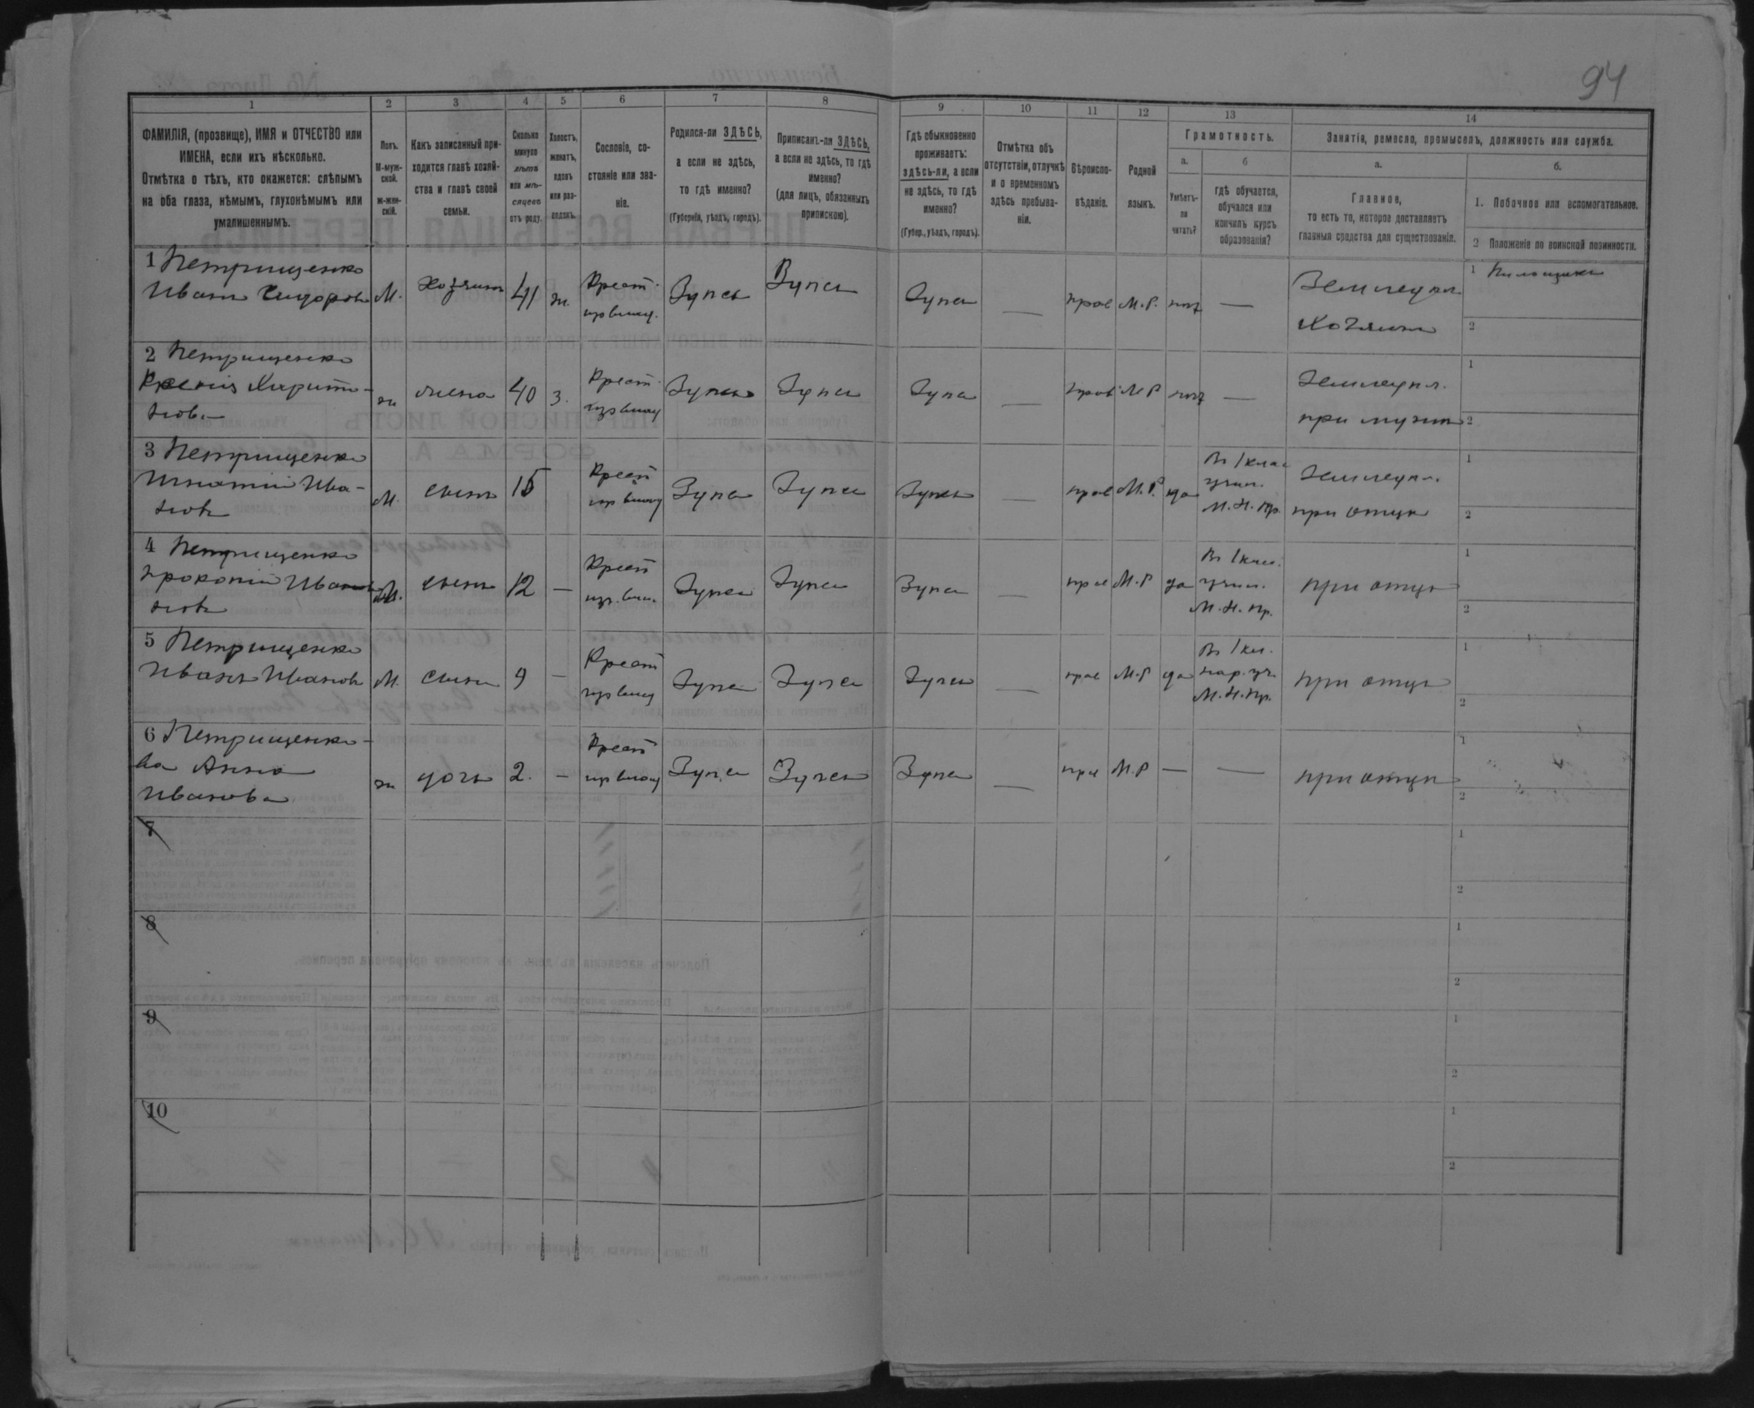 94
1
2
3
4
5
6
7
8
9
10
11
12
13
14
ФАМИЛІЯ, (прозвище), ИМЯ и ОТЧЕСТВО или
ИМЕНА, если ихъ нѣсколько.
Отмѣтка о тѣхъ, кто окажется: слѣпымъ
на оба глаза, нѣмымъ, глухонѣмымъ или
умалишеннымъ.
Полъ.
М-муж-
ской.
ж-жен-
скій.
Какъ записанный при-
ходится главѣ хозяй-
ства и главѣ своей
семьи.
Сколько
минуло
лѣтъ
или мѣ-
сяцевъ
отъ роду.
Холостъ,
женатъ,
вдовъ
или раз-
веденъ.
Сословіе, со-
стояніе или зва-
ніе.
Родился-ли ЗДѢСЬ,
а если не здѣсь,
то гдѣ именно?
(Губернія, уѣздъ, городъ).
Приписанъ-ли ЗДѢСЬ,
а если не здѣсь, то гдѣ
именно?
(для лицъ, обязанныхъ
припискою).
Гдѣ обыкновенно
проживаетъ:
здѣсь-ли, а если
не здѣсь, то гдѣ
именно?
(Губер., уѣздъ, городъ).
Отмѣтка объ
отсутствіи, отлучкѣ
и о временномъ
здѣсь пребыва-
ніи.
Вѣроиспо-
вѣданіе.
Родной
языкъ.
Грамотность.
а.
Умѣетъ-
ли
читать?
б
гдѣ обучается,
обучался или
кончилъ курсъ
образованія?
Занятія, ремесло, промыселъ, должность или служба.
а.
Главное,
то есть то, которое доставляетъ
главныя средства для существованія.
б.
1. Побочное или вспомогательное.
2 Положеніе по воинской повинности.
1 Петрищенко
Иванъ Сидоровъ
М.
Хозяинъ
41
ж.
Крест.
Здѣсь
Здѣсь
Здѣсь
—
прав
М.Р.
нѣт
—
Земледѣл.
Хозяинъ
1
2
2 Петрищенко
Харито-
нова
ж
жена
40
з.
Крест.
Здѣсь
Здѣсь
Здѣсь
—
прав
М.Р
нѣт
—
Земледѣл.
при мужѣ
1
2
3 Петрищенко
Игнатій Ива-
новъ
М.
сынъ
15
Крест
Здѣсь
Здѣсь
Здѣсь
—
прав
М.Р.
да
Въ 1 клас
учил.
М.Н.Пр.
Земледѣл.
при отцѣ
1
2
4 Петрищенко
Прокопій Ива
новъ
М.
сынъ
12
—
Крест
Здѣсь
Здѣсь
Здѣсь
—
прав
М.Р
да
Въ 1 клас.
учил.
М.Н.Пр.
при отцѣ
1
2
5 Петрищенко
Иванъ Ивановъ
М.
сынъ
9
—
Крест
Здѣсь
Здѣсь
Здѣсь
—
прав
М.Р
да
Въ 1 кл.
нар. уч.
М.Н.Пр.
при отцѣ
1
2
6 Петрищенко-
ва Анна
Иванова
ж
дочь
2.
—
Крест
Здѣсь
Здѣсь
Здѣсь
—
прав
М.Р
—
—
при отцѣ
1
2
7
1
2
8
1
2
9
1
2
10
1
2